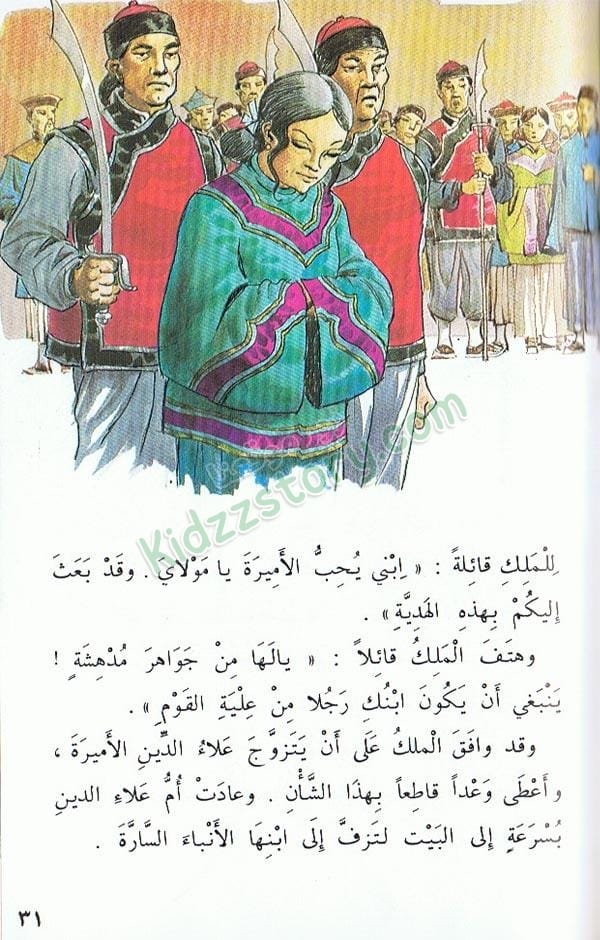 Kidzzstory.com
لِلْمَلِكِ قائِلةً : « اِبْني يُحِبُّ الأَمِيرَةَ يا مَوْلايَ . وقَدْ بَعَثَ
إِليكُمْ بِهذِهِ الهَدِيَّةِ » .
وهتَفَ الْمَلِكُ قائِلاً : « يالَهَا مِنْ جَوَاهرَ مُدْهِشَةٍ !
يَنْبَغي أَنْ يَكُونَ ابْنُكِ رَجُلا مِنْ عِلْيَةِ القَوْمِ » .
وقد وافَقَ الْملكُ عَلَى أَنْ يَتَزوَّجَ عَلاءُ الدِّينِ الأَميرَةَ ،
وأَعْطَى وَعْداً قاطِعاً بِهذا الشَّأْنِ . وعادَتْ أُمُّ عَلاءِ الدينِ
بِسُرْعَةٍ إِلى البَيْتِ لتَزفَّ إِلَى ابْنِهَا الأَنْباءَ السَّارَّةَ .
٣١